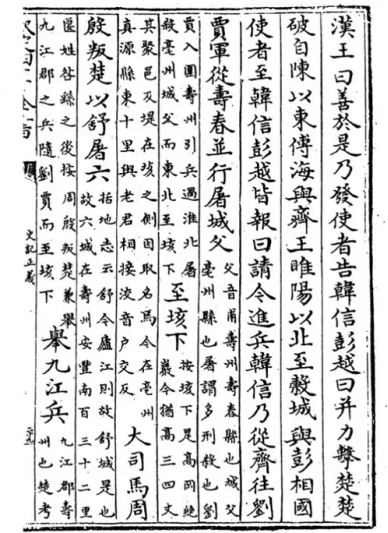 漢王曰善於是乃發使者告韓信彭越曰并力擊楚楚
破自陳以東傅海與齊王睢陽以北至榖城與彭相國
使者至韓信彭越皆報曰請今進兵韓信乃從齊往劉
賈軍從壽春並行屠城父
父音甫壽州壽春縣也城父
亳州縣也屠謂多刑殺也劉
賈入圍壽州引兵過淮北屠
殺亳州城父而東北至垓下
至垓下
按垓下是高岡絶
巖今猶高三四丈
其聚邑及堤在垓之側因取名焉今在亳州
真源縣東十里與老君相接洨音户交反
大司馬周
殷叛楚以舒屠六
括地志云舒今廬江則故舒城是也
故六城在壽州安豐南百三十二里
匽姓咎繇之後按周殷叛楚兼舉
九江郡之兵隨劉賈而至垓下
舉九江兵
九江郡壽
州也楚考
史記正義